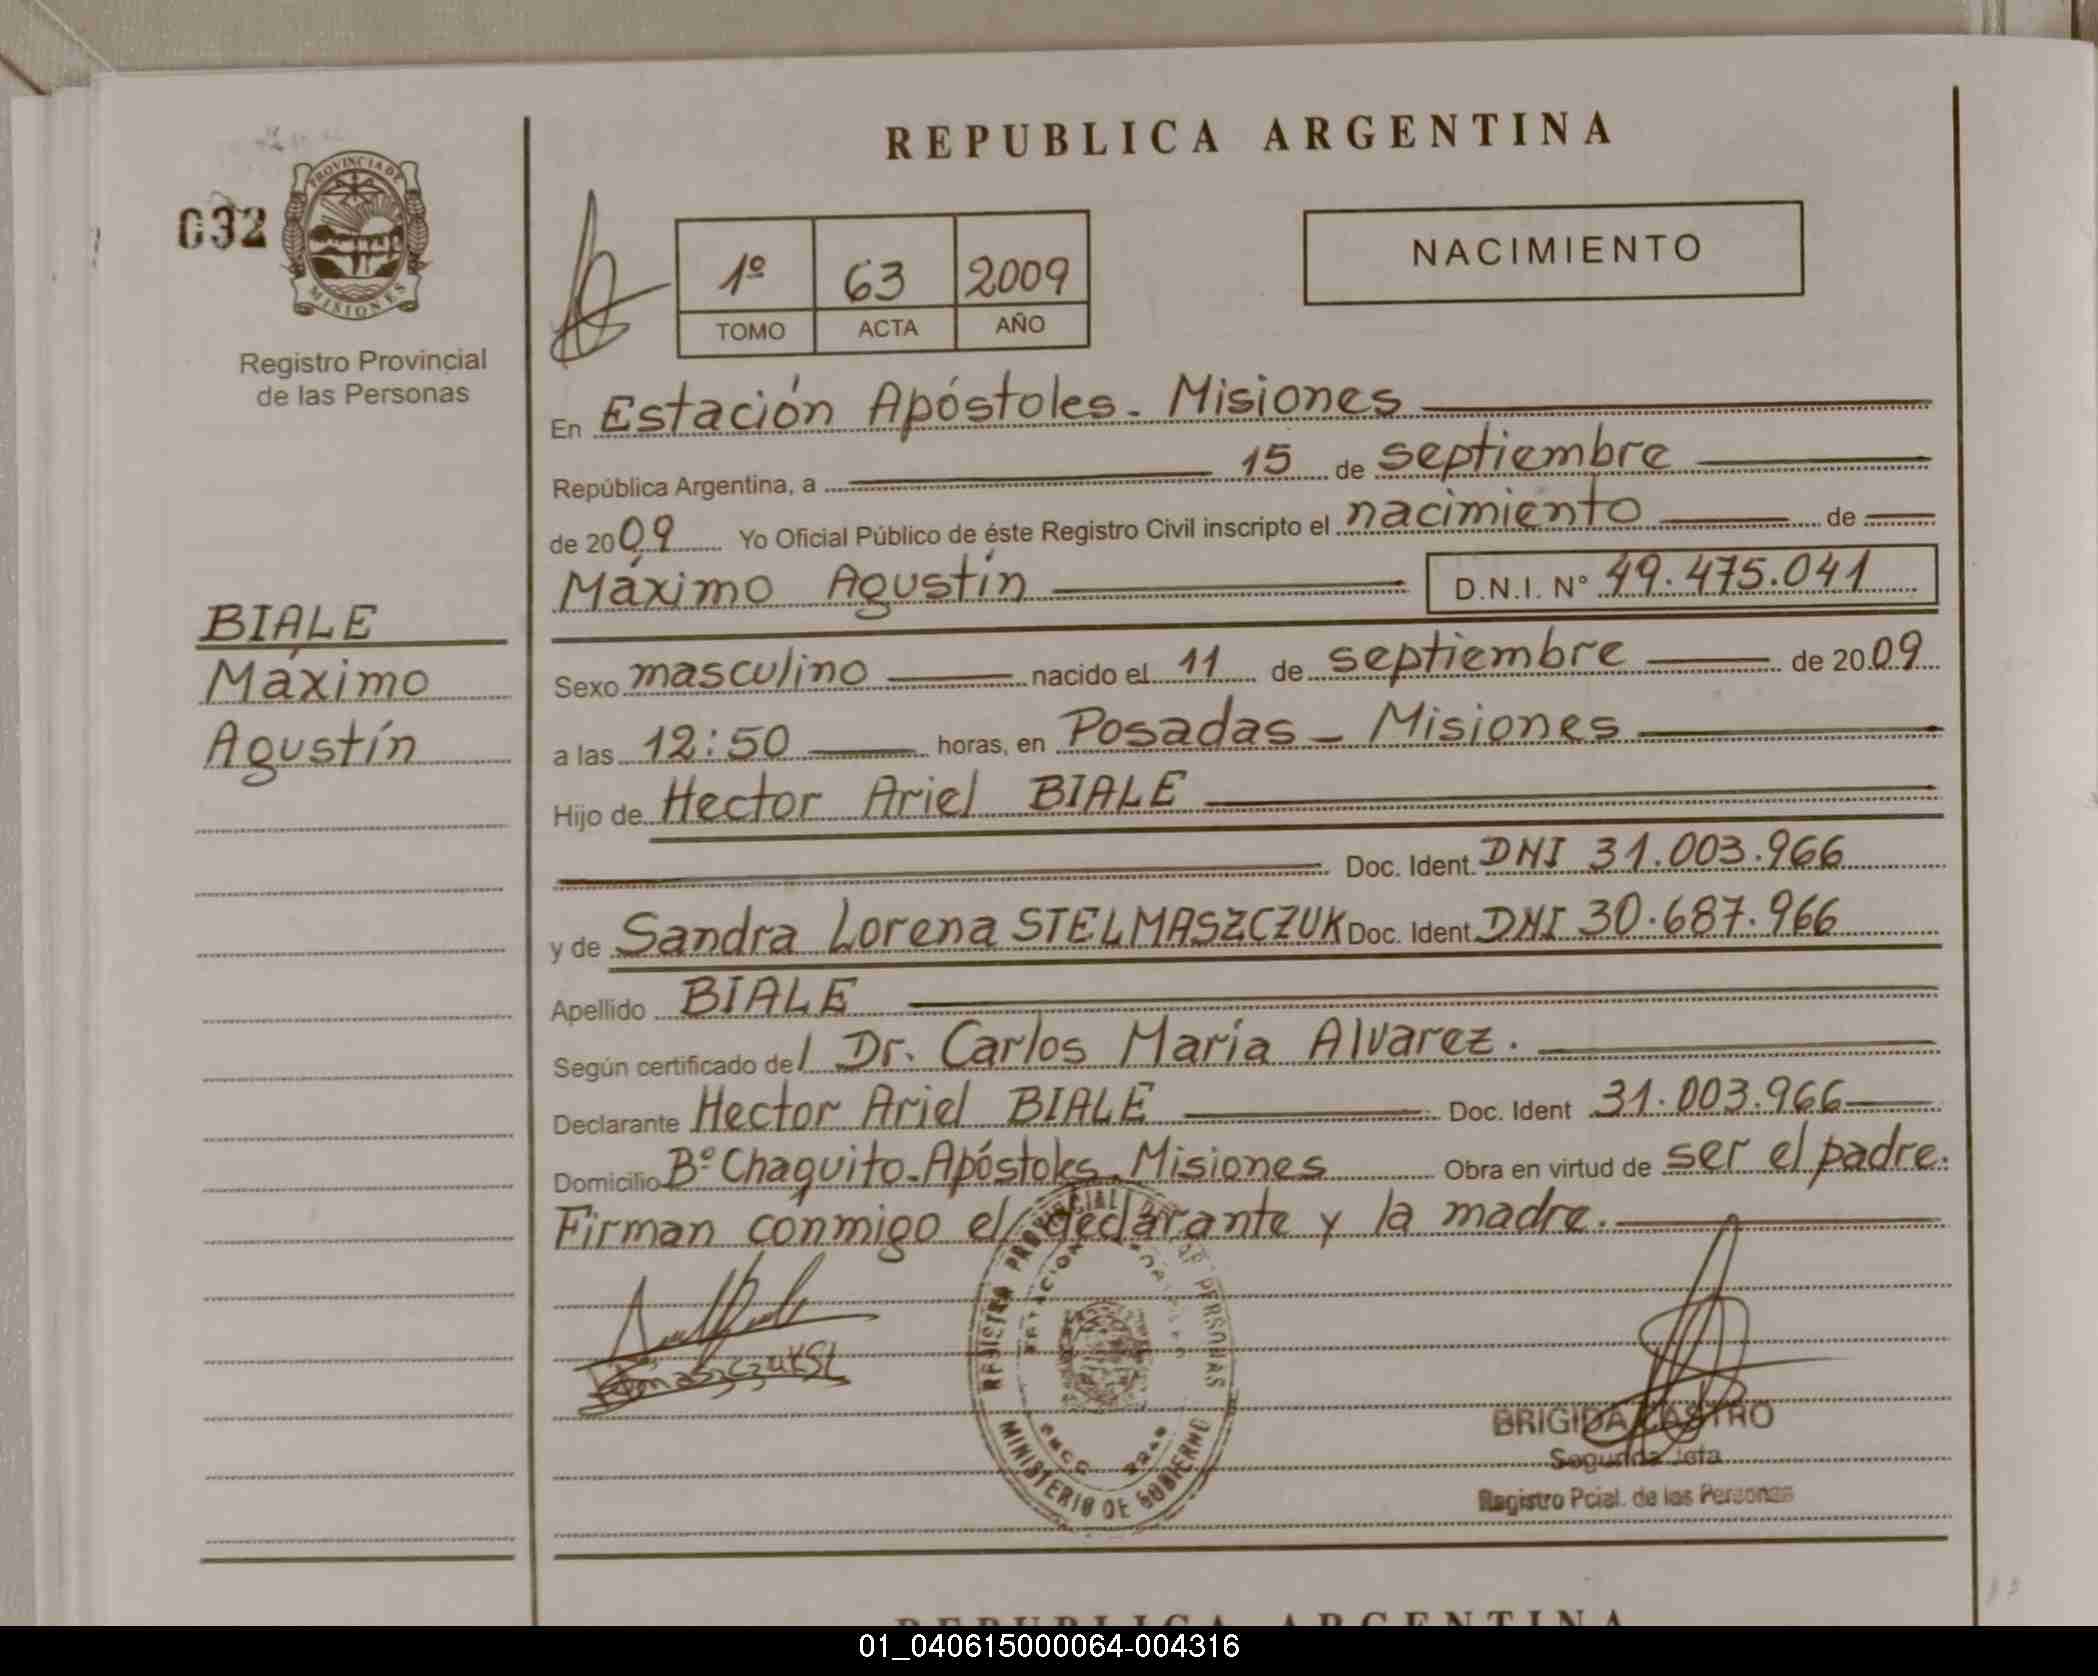 REPUBLICA ARGENTINA
032
PROVINCIA DE
MISIONES
Registro Provincial
de las Personas
1º 63 2009
TOMO ACTA AÑO
NACIMIENTO
En Estación Apóstoles. Misiones
República Argentina, a 15 de septiembre
de 2009 Yo Oficial Público de éste Registro Civil inscripto el nacimiento de
Máximo Agustín D.N.I. Nº 49.475.041
BIALE
Máximo
Agustín
Sexo masculino nacido el 11 de septiembre de 2009
a las 12:50 horas, en Posadas - Misiones
Hijo de Hector Ariel BIALE
Doc. Ident. DNI 31.003.966
y de Sandra Lorena STELMASZCZUK Doc. Ident DNI 30.687.966
Apellido BIALE
Según certificado del Dr. Carlos María Alvarez.
Declarante Hector Ariel BIALE Doc. Ident 31.003.966
Domicilio Bº Chaquito. Apóstoles. Misiones Obra en virtud de ser el padre.
Firman conmigo el declarante y la madre.
REGISTRO PROVINCIAL DE PERSONAS
MINISTERIO DE GOBIERNO
BRIGIDA CASTRO
Segunda Jefa
Registro Pcial. de las Personas
REPUBLICA ARGENTINA
01_040615000064-004316